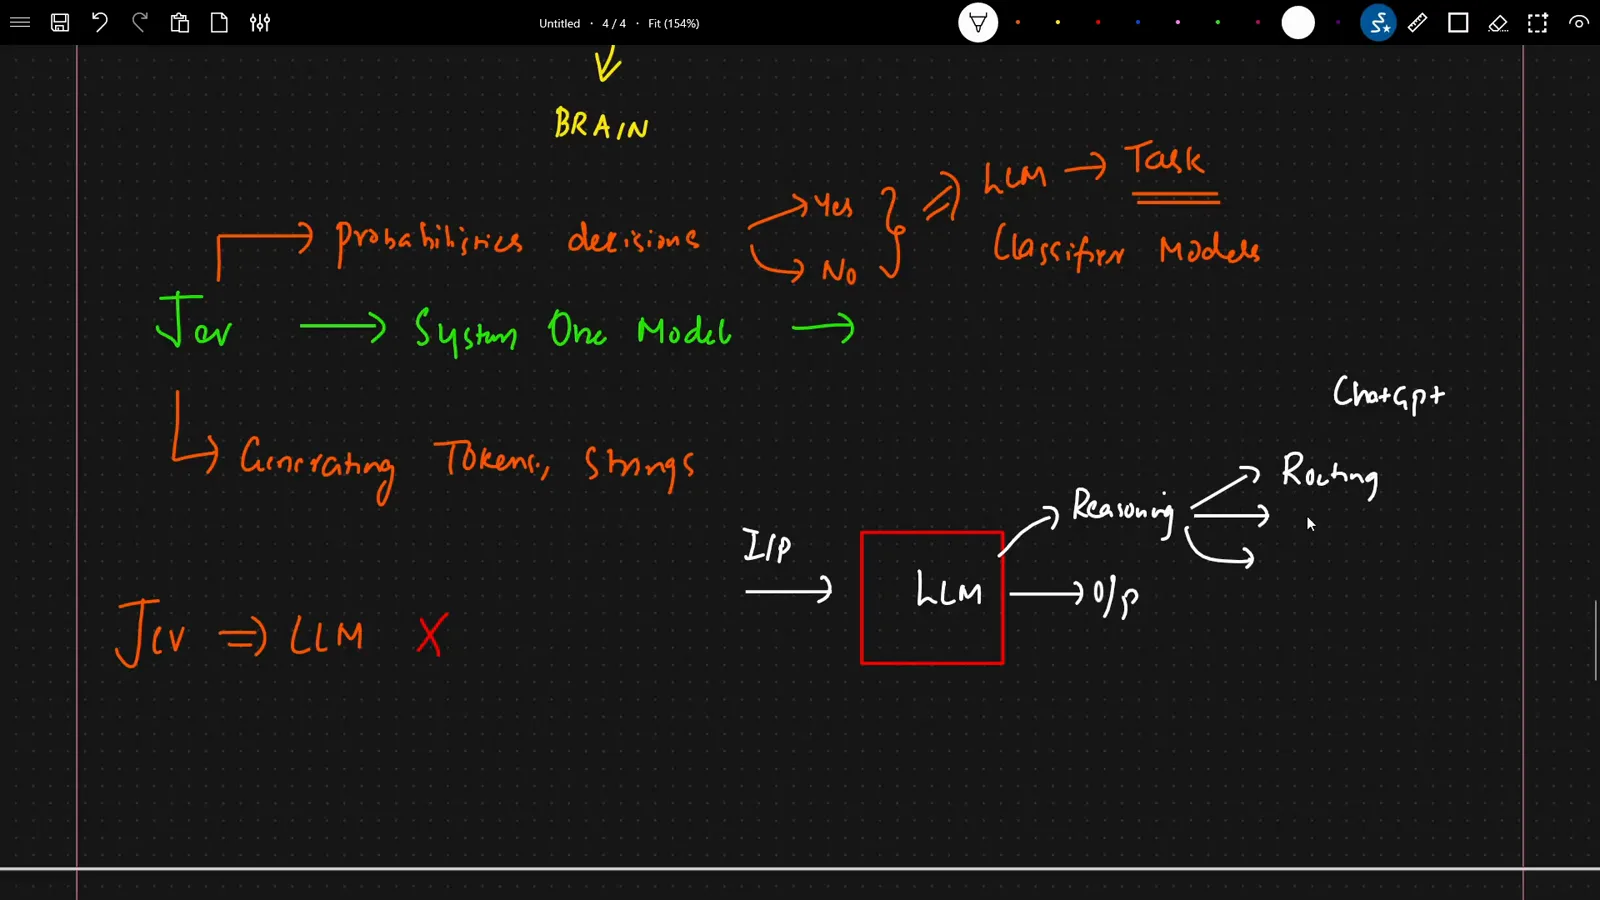 Untitled · 4 / 4 · Fit (154%)
BRAIN
LLM → Task
Probabilistics decisions
Yes
No
Classifier Models
Jev → System One Model →
Generating Tokens, Strings
ChatGpt
Reasoning
Routing
I/P
LLM
O/p
Jev ⇒ LLM X